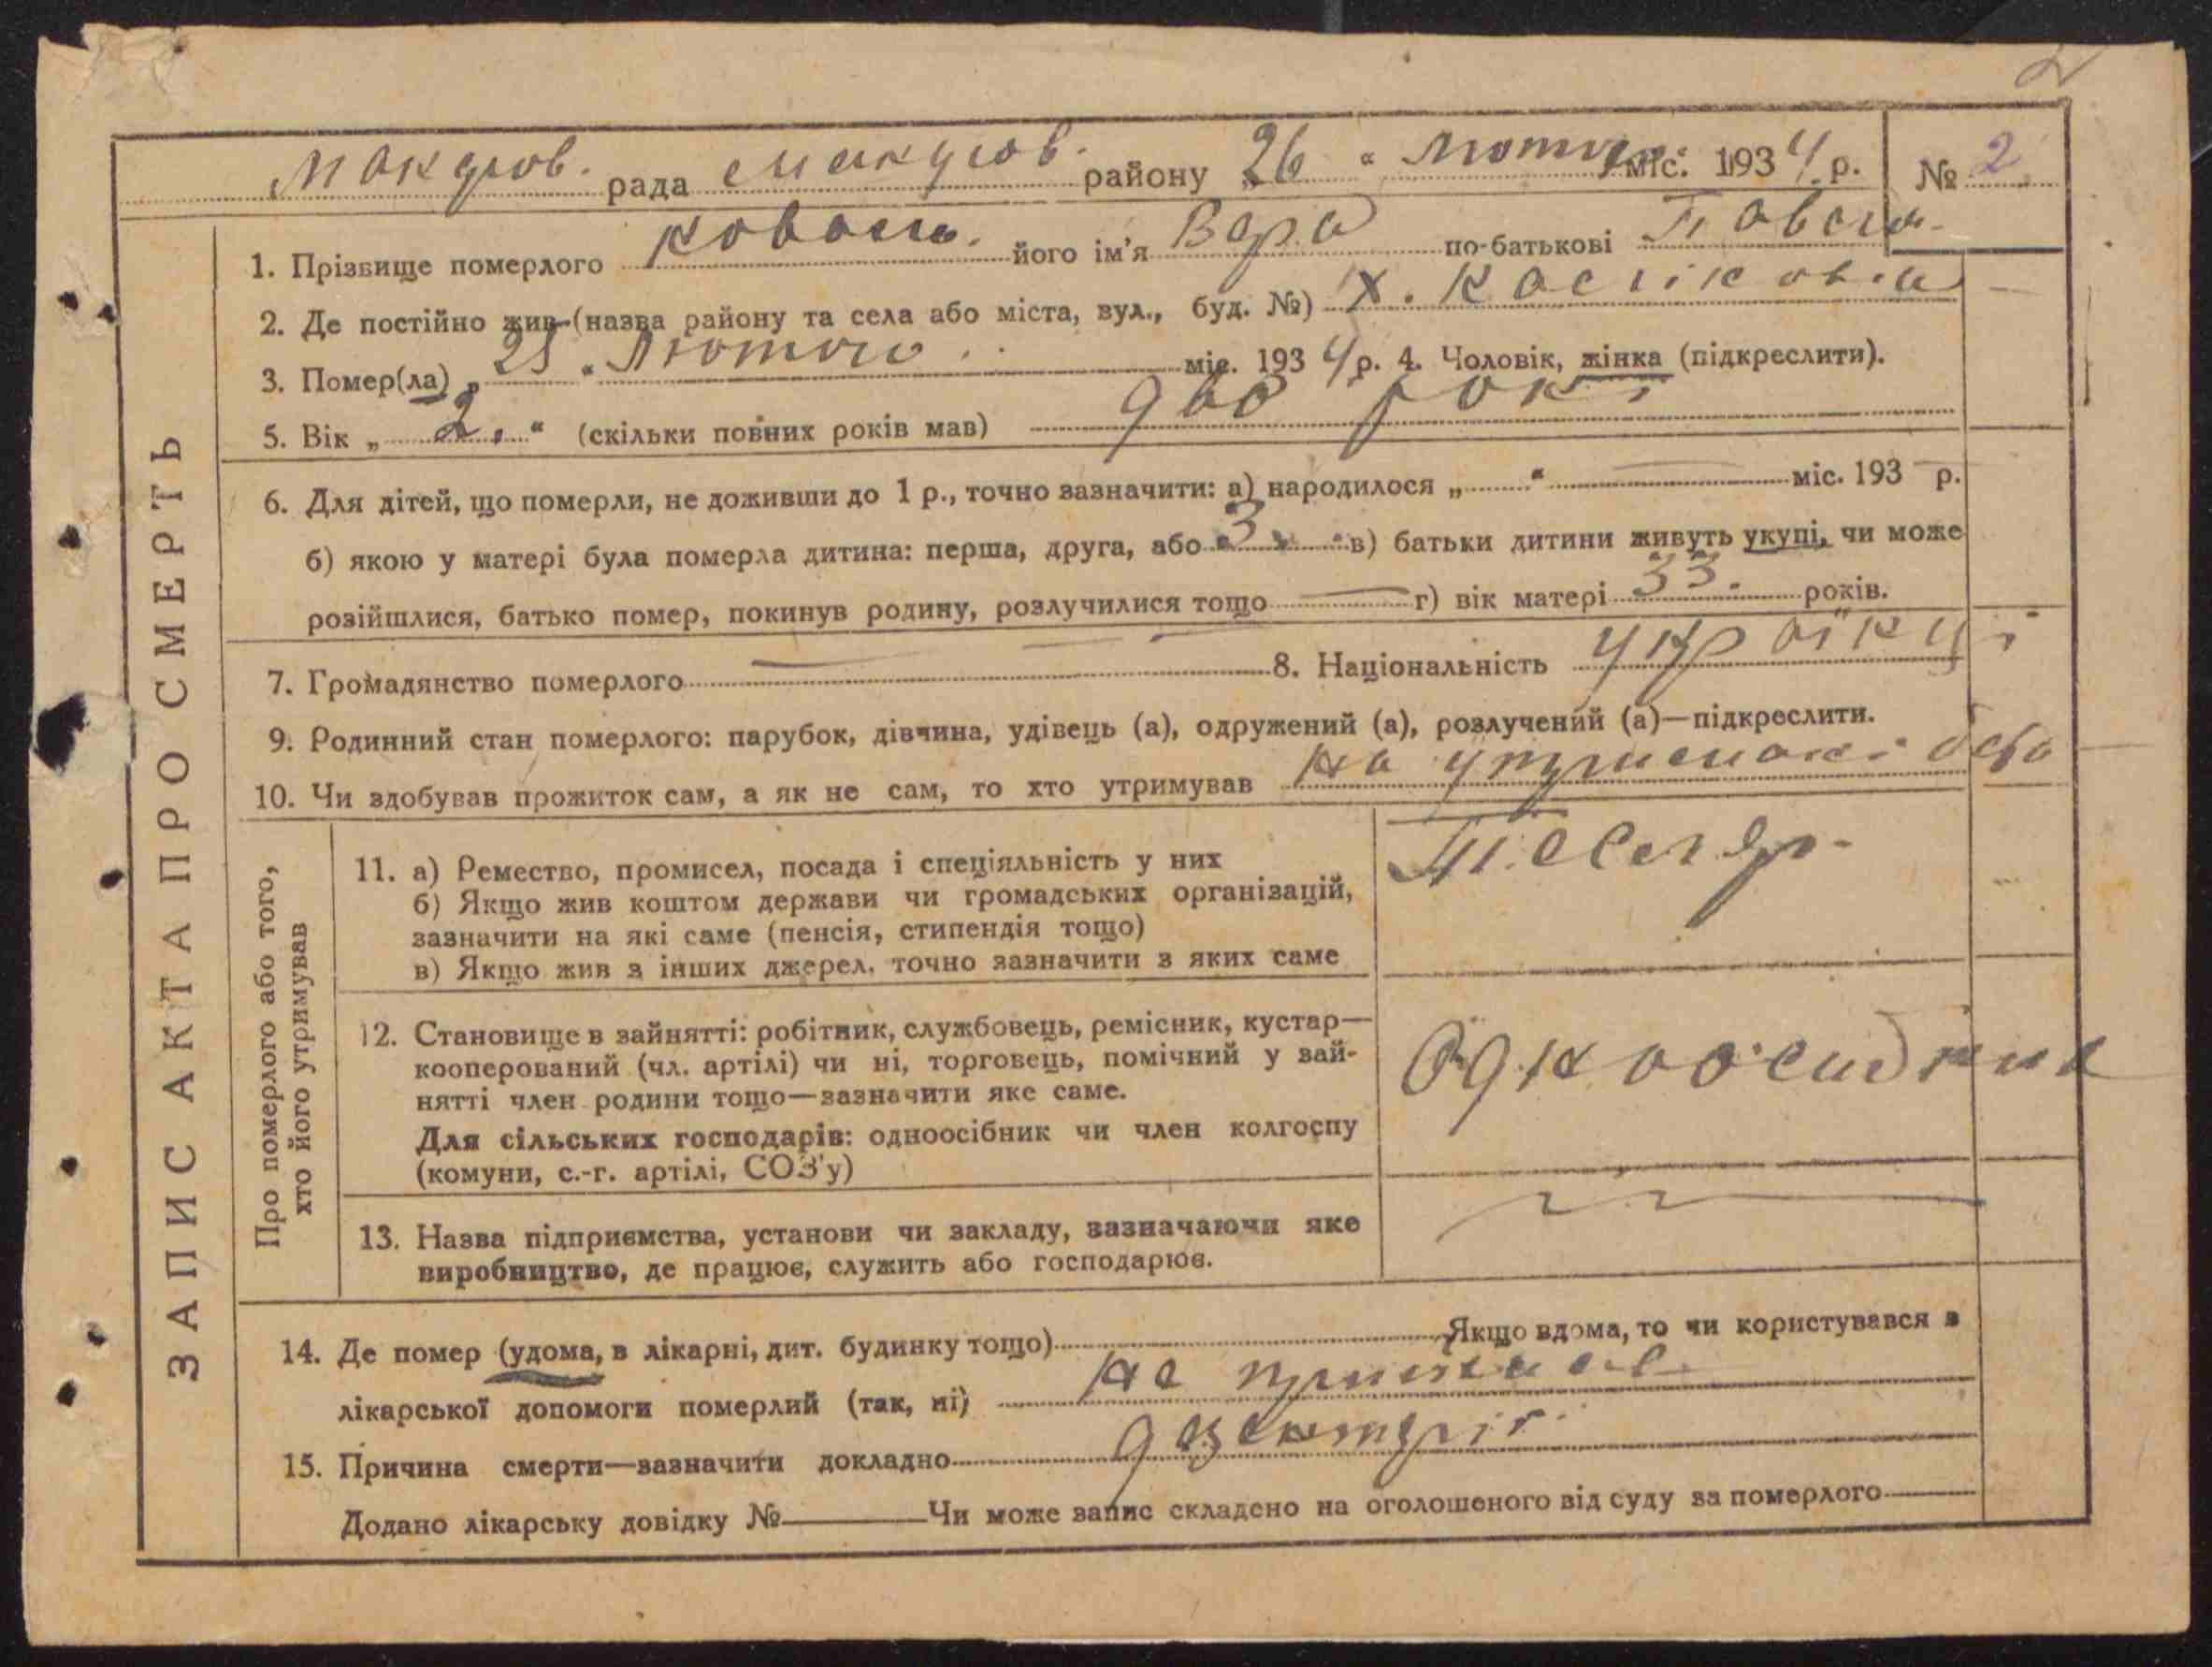 2
Макаров. рада Макаров. району 26 " Лютого міс. 1934 р. № 2
1. Прізвище померлого Коваль. його ім'я Вера по-батькові Павел.
2. Де постійно жив (назва району та села або міста, вул., буд. №) х.
3. Помер(ла) „ 25 " Лютого міс. 1934 р. 4. Чоловік, жінка (підкреслити).
5. Вік „ 2. " (скільки повних років мав) два роки
6. Для дітей, що померли, не доживши до 1 р., точно зазначити: а) народилося „ " — міс. 193 – р.
б) якою у матері була померла дитина: перша, друга, або " 3 " в) батьки дитини живуть укупі, чи може
розійшлися, батько помер, покинув родину, розлучилися тощо — г) вік матері 33. років.
7. Громадянство померлого — 8. Національність
9. Родинний стан померлого: парубок, дівчина, удівець (а), одружений (а), розлучений (а)—підкреслити.
10. Чи здобував прожиток сам, а як не сам, то хто утримував на
ЗАПИС АКТА ПРО СМЕРТЬ
Про померлого або того,
хто його утримував
11. а) Ремество, промисел, посада і спеціяльність у них
б) Якщо жив коштом держави чи громадських організацій,
зазначити на які саме (пенсія, стипендія тощо)
в) Якщо жив з інших джерел, точно зазначити з яких саме
12. Становище в зайнятті: робітник, службовець, ремісник, кустар—
кооперований (чл. артілі) чи ні, торговець, помічний у зай-
нятті член родини тощо—зазначити яке саме.
Для сільських господарів: одноосібник чи член колгоспу
(комуни, с.-г. артілі, СОЗ'у)
13. Назва підприємства, установи чи закладу, зазначаючи яке
виробництво, де працює, служить або господарює.
14. Де помер (удома, в лікарні, дит. будинку тощо) Якщо вдома, то чи користувався з
лікарської допомоги померлий (так, ні) не
15. Причина смерти—зазначити докладно
Додано лікарську довідку № Чи може запис складено на оголошеного від суду за померлого